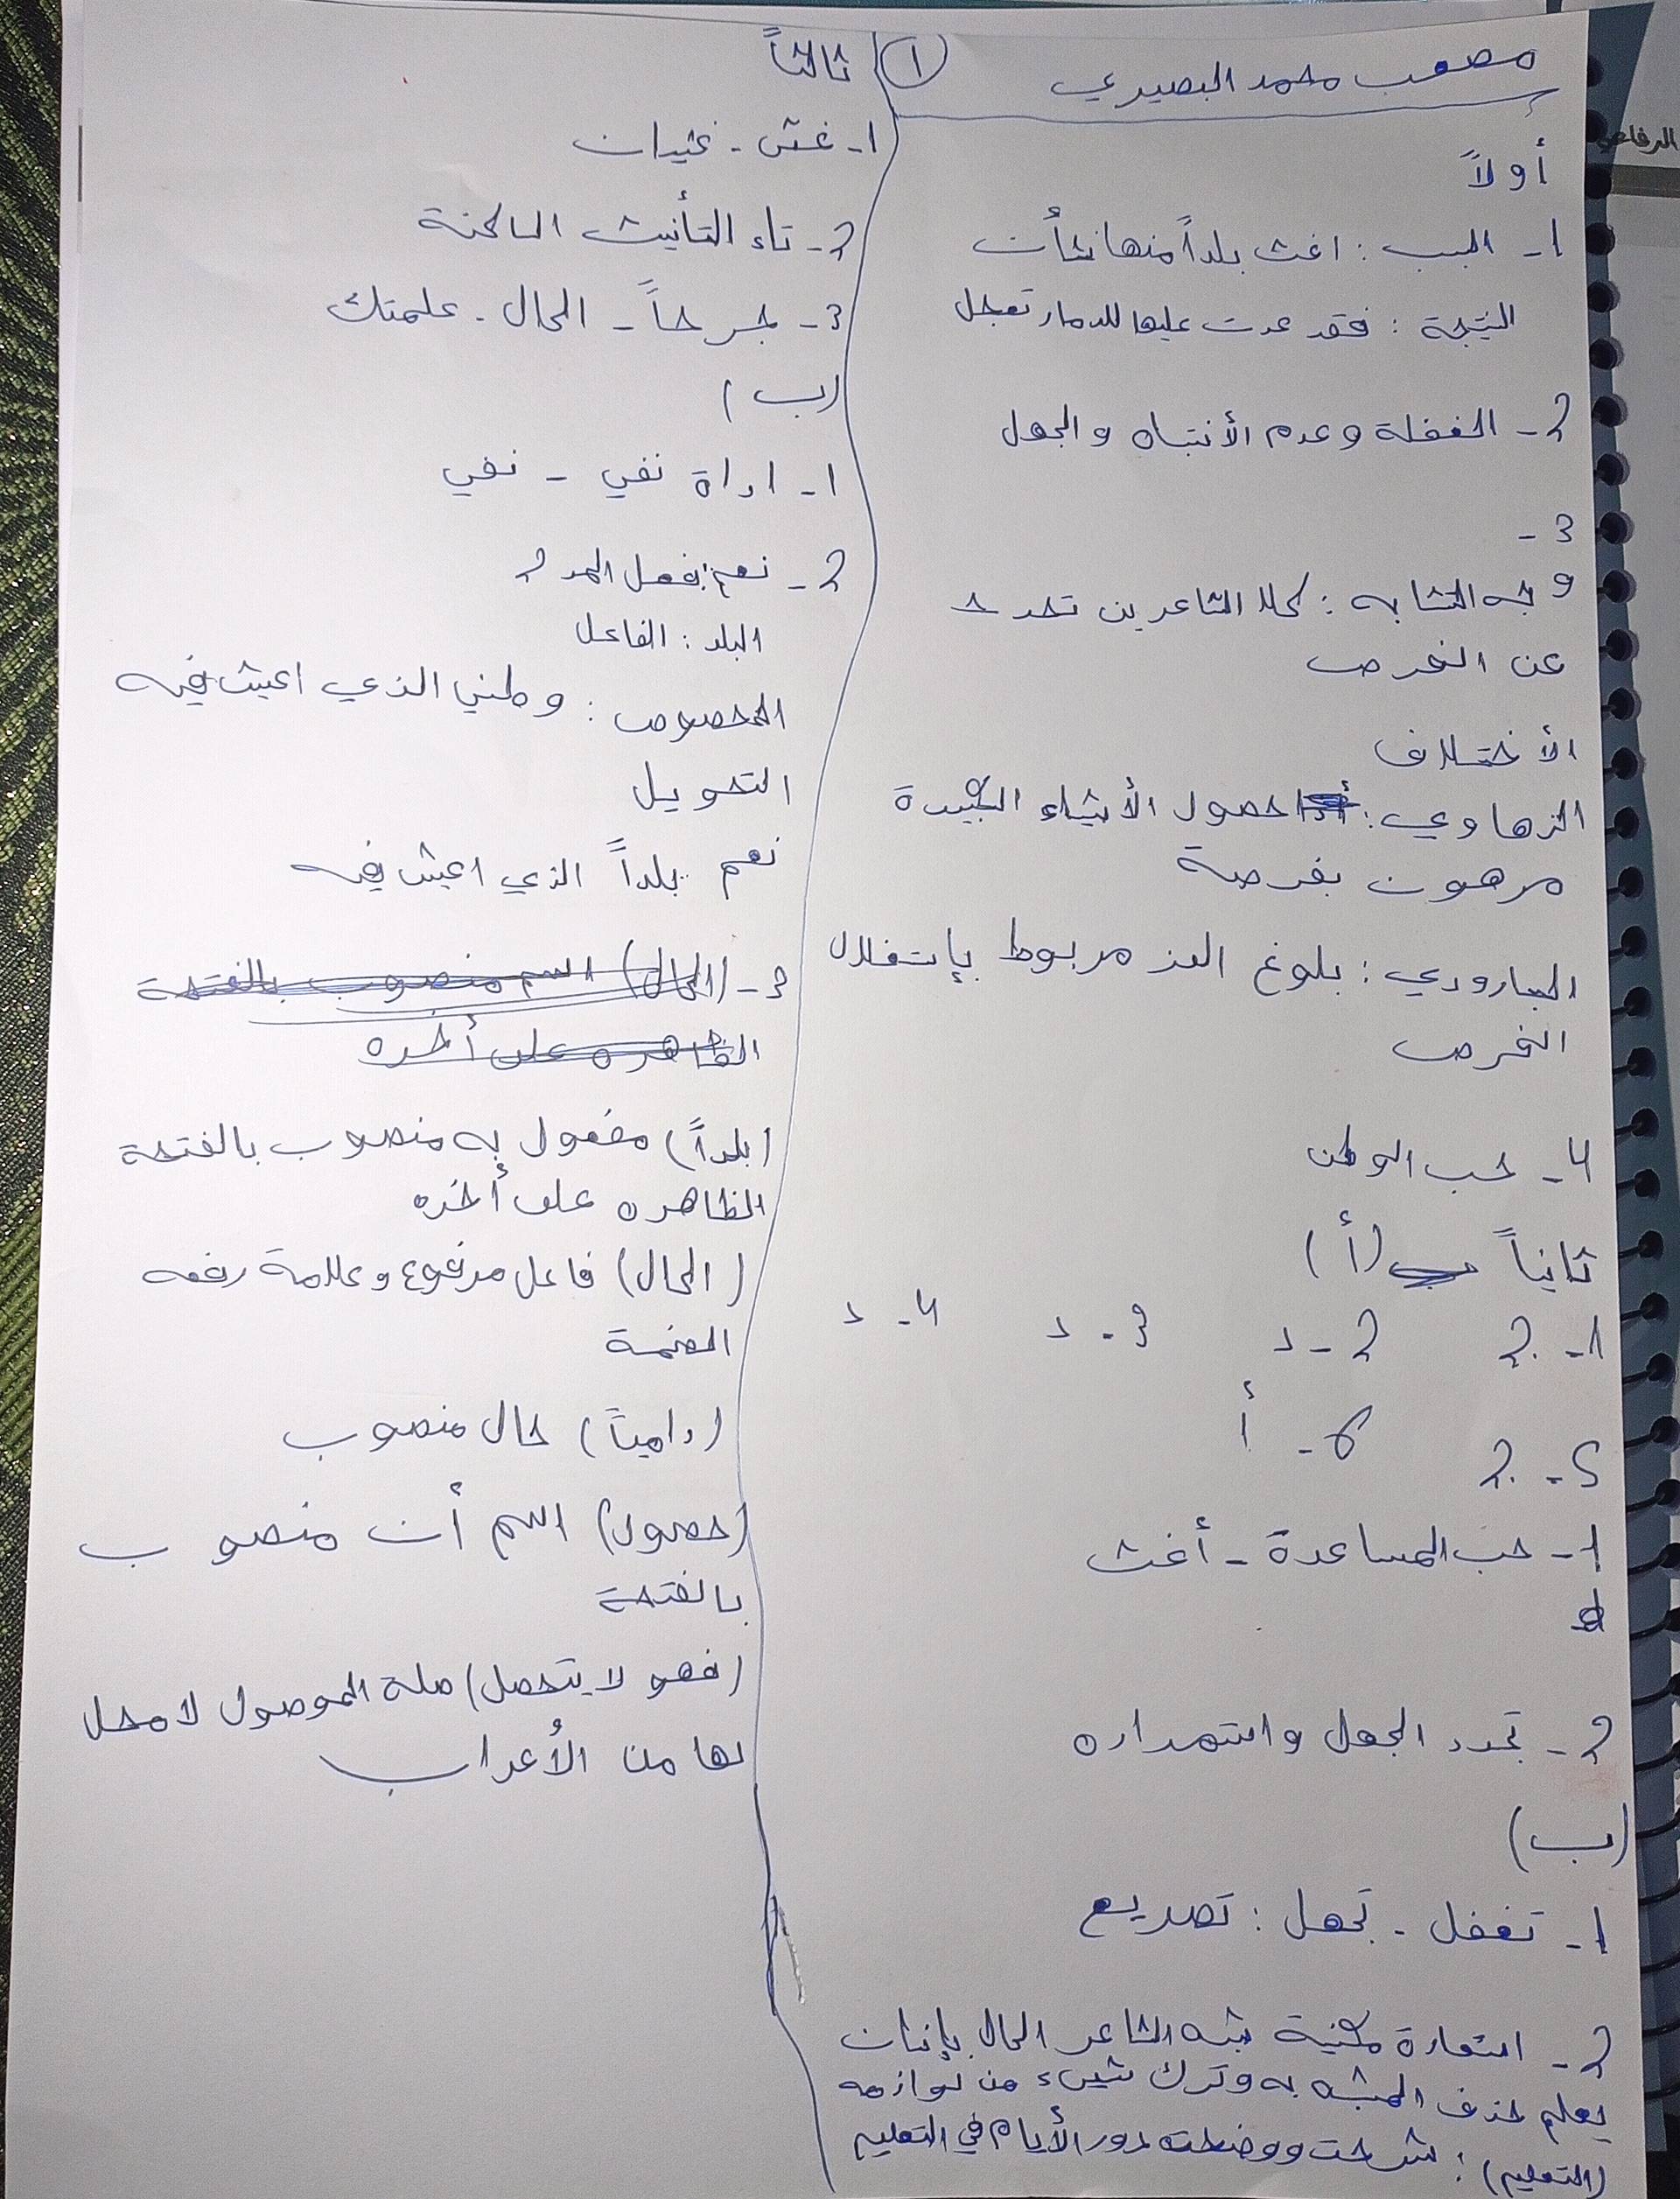 مصعب محمد البصيري
١
أولاً
1- السبب : اغث بلداً منها نشأت
النتيجة : فقد عدت عليها للدمار تعجل
2- الغفلة وعدم الأنتباه والجهل
3-
وجه التشابه : كلا الشاعرين تحدث
عن الفرص
الأختلاف
الزهاوي : حصول الأشياء الكبيرة
مرهون بفرصة
البارودي : بلوغ العز مربوط بإستغلال
الفرص
4- حب الوطن
ثانياً (أ)
1- 2- د 3- د 4- د
5- 6- أ
1- حب المساعدة - أغث
2- تجدد الجهل واستمراره
(ب)
1- تغفل - تجهل : تصريع
2- استعارة مكنية شبه الشاعر الحال بإنسان
يعلم حذف المشبه به وترك شيء من لوازمه
(التعليم) : شرحت ووضحت دور الأيام في التعليم
ثالثاً
1- غش - غثيان
2- تاء التأنيث الساكنة
3- جرحاً - الحال - علمتك
(ب)
1- اداة نفي - نفي
2- نعم : فعل المدح
البلد : الفاعل
المخصوص : وطني الذي اعيش فيه
التحويل
نعم بلداً الذي اعيش فيه
3- (الحال) اسم منصوب بالفتحة
الظاهره على أخره
(بلداً) مفعول به منصوب بالفتحة
الظاهره على أخره
(الحال) فاعل مرفوع وعلامة رفعه
الضمة
(دامياً) حال منصوب
(حصول) اسم أن منصوب
بالفتحة
(فهو لا يتحصل) صلة الموصول لا محل
لها من الأعراب
الرفاعي